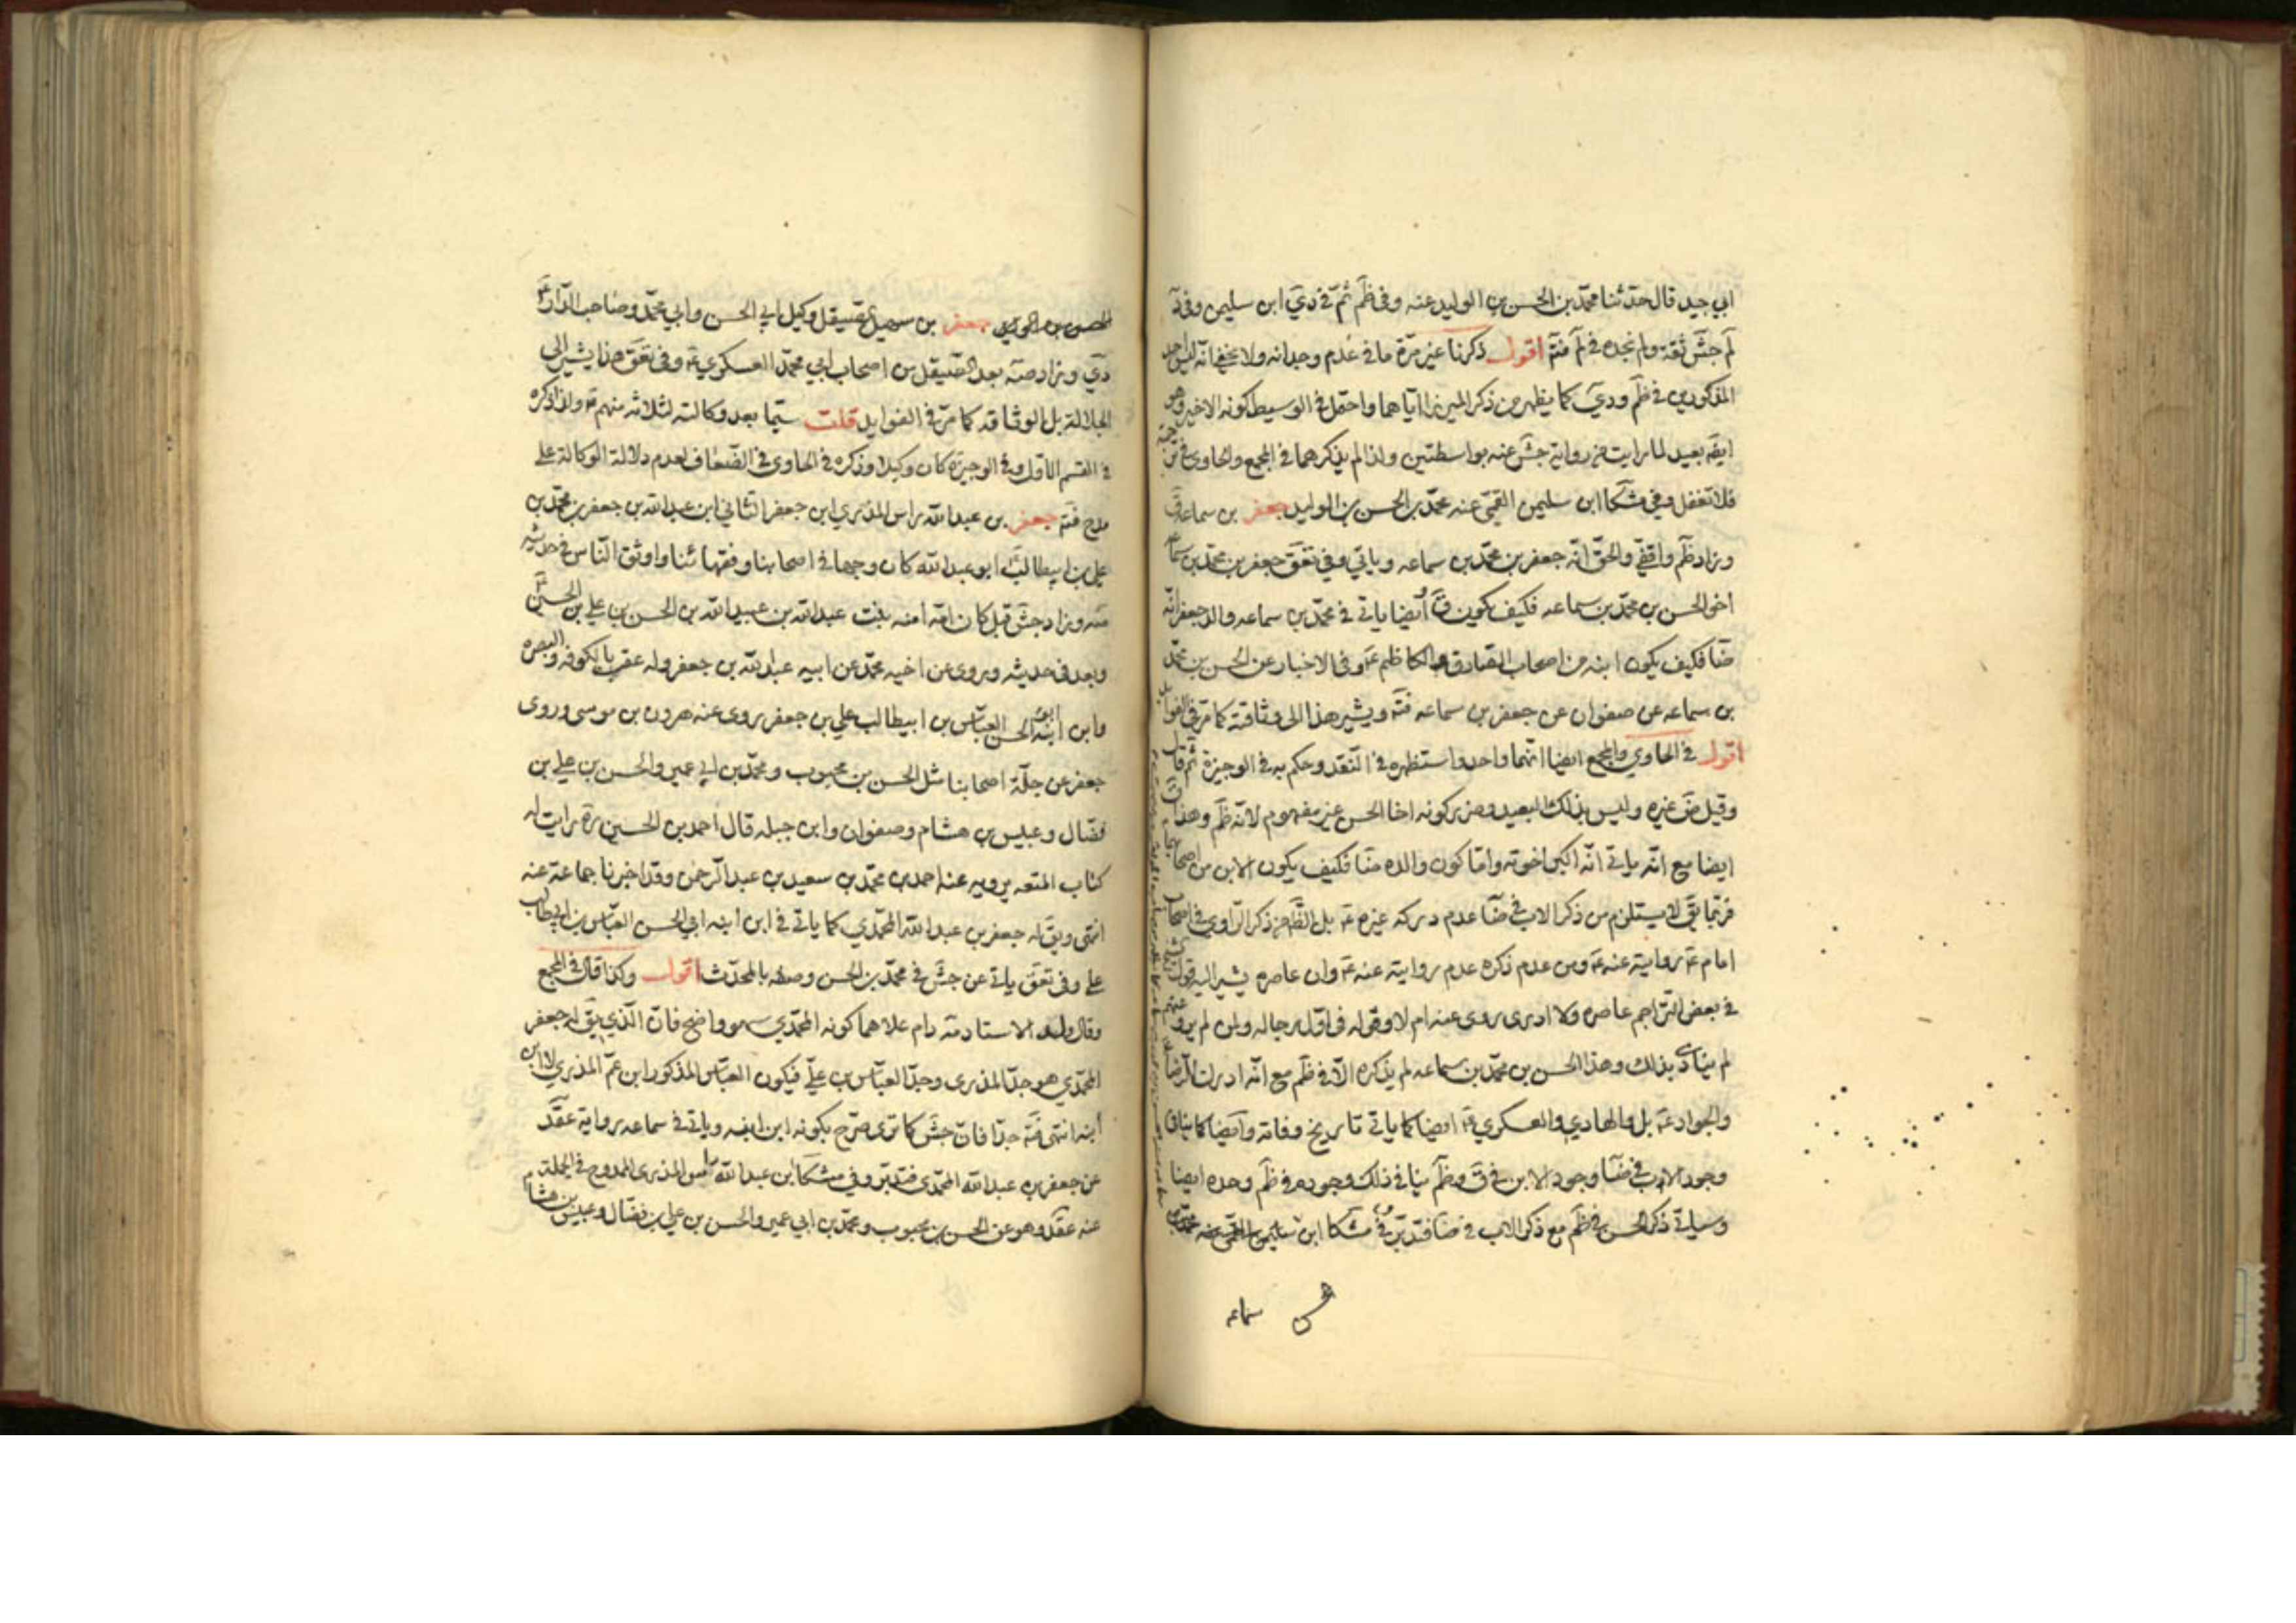 ابي جيد قال حدثنا محمد بن الحسن بن الوليد عنه وفي ظم ثم في دي ابن سليمن وفي
لم جش ثقة ولم نجده في لم فتم اقول ذكرنا غير مرة ما في عدم وجدانه ولا يخفى انه ليس احد
المذكورين في ظم ودي كما يظهر من ذكر الميرزا اياهما واحتمل في الوسيط كونه الاخير وهو
ايضَ بعيد لما رايت من رواية جش عنه بواسطتين ولذا لم يذكرهما في المجمع والحاوي
فلا تغفل وفي مشكا ابن سليمن القمي عنه محمد بن الحسن بن الوليد جعفر بن سماعه ق
وزاد ظم واقفي والحق انه جعفر بن محمد بن سماعه وياتي وفي تعق جعفر بن محمد بن سماعه
اخو الحسن بن محمد بن سماعه فكيف يكون ق أيضا ياتي في محمد بن سماعه والد جعفر انه
ضا فكيف يكون ابنه من اصحاب الصادق والكاظم ع وفي الاخبار عن الحسن بن محمد
بن سماعه عن صفوان عن جعفر بن سماعه ثقة ويشير هذا الى وثاقته كما مر في الفوايد
اقول في الحاوي والمجمع ايضا انهما واحد واستظهره في النقد وحكم به في الوجيزة ثم قال
وقيل غيره وليس بذلك البعيد وضرر كونه اخا الحسن غير مفهوم لانه ظم وهذا ق
ايضا مع انه ياتي انه اكبر اخوته واما كون والده ضا فكيف يكون الابن من اصحابهما
فربما يق لا يستلزم من ذكر الاب في ضا عدم دركه غيره ع بل الظاهر من ذكر الراوي في اصحاب
امام ع روايته عنه ع ومن عدم ذكره عدم روايته عنه ع وان عاصره يشير اليه قول الشيخ
في بعض التراجم عاصره ولا ادري روى عنه ام لا وقوله في اول رجاله ولمن لم يرو عنهم
لم ينادي بذلك وهذا الحسن بن محمد بن سماعه لم يذكره الا في ظم مع انه ادرك الرضا
والجواد ع بل والهادي والعسكري ع ايضا كما ياتي تاريخ وفاته وايضا كما ينافي
وجود الاب في ضا وجود الابن في ق وظم ينافي ذلك وجوده في ظم وحده ايضا
وسياتي ذكر الحسن في ظم مع ذكر الاب في ضا فتدبر وفي مشكا ابن
سماعه
جعفر بن سهيل صيقل وكيل ابي الحسن وابي محمد وصاحب الدار ع
دي وزاد صه بعد الصيقل من اصحاب ابي محمد العسكري ع وفي تعق هذا يشير الى
الجلالة بل الوثاقه كما مر في الفوايد قلت سيما بعد وكالته لثلاثه منهم ع ولذا ذكره
في القسم الاول وفي الوجيزة كان وكيلا وذكره في الحاوي في الضعاف لعدم دلالة الوكالة على
مدح فتم جعفر بن عبد الله راس المذري ابن جعفر الثاني ابن عبد الله بن جعفر بن محمد بن
علي بن ابيطالب ابو عبد الله كان وجها في اصحابنا وفقهائنا واوثق الناس في حديثه
صه وزاد جش قبل كان امه امنه بنت عبد الله بن عبيد الله بن الحسن بن علي بن الحسين
وبعد في حديثه وروى عن اخيه محمد عن ابيه عبد الله بن جعفر وله عقب بالكوفه والبصره
وابن ابنه ابو الحسن العباس بن ابيطالب علي بن جعفر يروى عنه هرون بن موسى وروى
جعفر عن جلة اصحابنا مثل الحسن بن محبوب ومحمد بن ابي عمير والحسن بن علي بن
فضال وعبيس بن هشام وصفوان وابن جبله قال احمد بن الحسين ره رايت له
كتاب المتعه يرويه عنه احمد بن محمد بن سعيد بن عبد الرحمن وقد اخبرنا جماعة عنه
انتهى ويق له جعفر بن عبد الله المحمدي كما ياتي في ابن ابنه ابي الحسن العباس بن ابيطالب
علي وفي تعق ياتي عن جش في محمد بن الحسن وصفه بالمحدث اقول وكذا قال في المجمع
وقال ولد الاستاد مة دام علاهما كونه المحمدي سهو واضح فان الذي يق له جعفر
المحمدي هو جد المذري وجد العباس بن علي فيكون العباس المذكور ابن عم المذري لا ابن
ابنه انتهى فة جدا فان جش كما ترى صرح بكونه ابن ابنه وياتي في سماعه رواية عقد
عن جعفر بن عبد الله المحمدي فتدبر وفي مشكا ابن عبد الله راس المذري الممدوح في الجملة
عنه عقد وهو عن الحسن بن محبوب ومحمد بن ابي عمير والحسن بن علي بن فضال وعبيس بن هشام